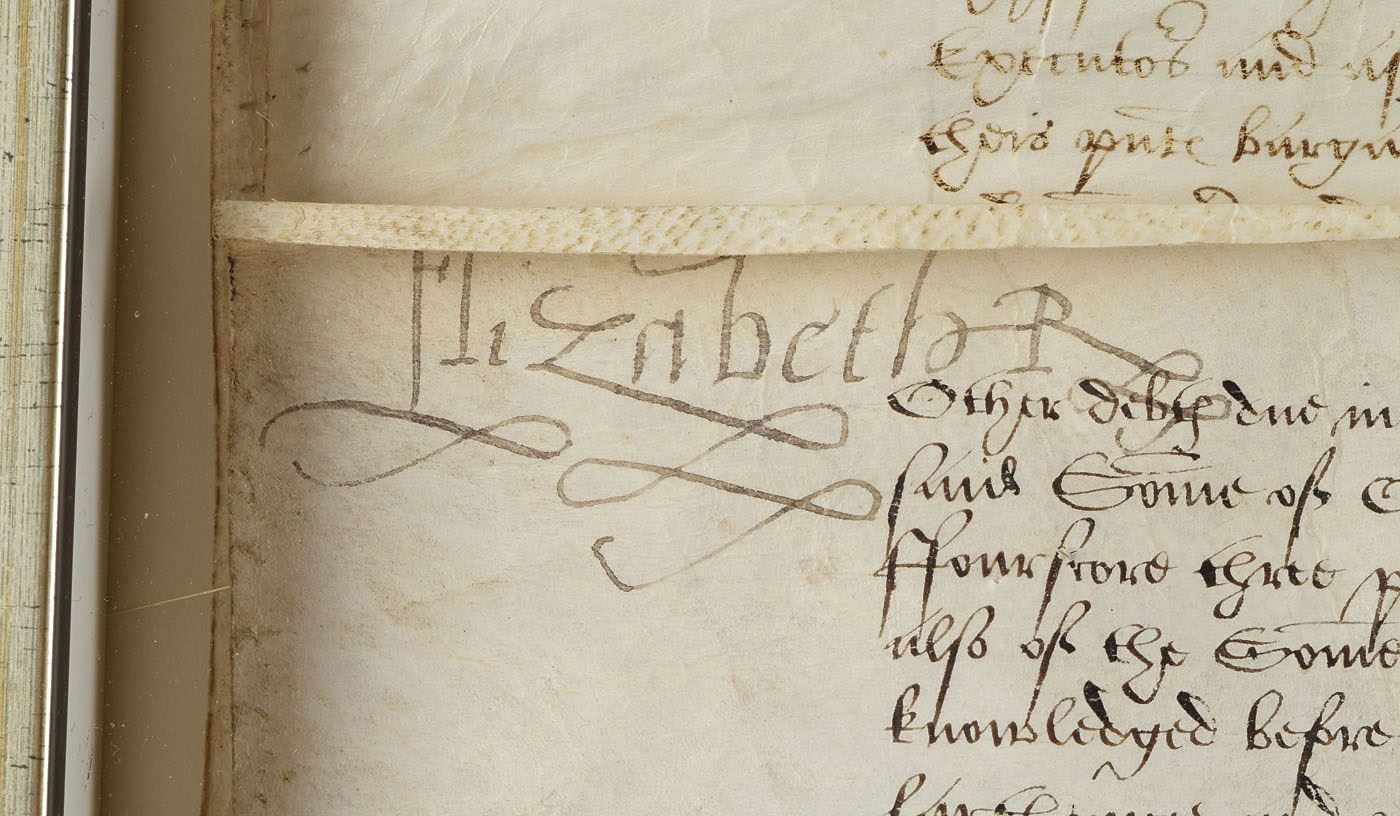 Executos and
theis pnte
Elizabeth R
Other debts due in
said Some of
ffourscore three
also of the Some
knowledged before